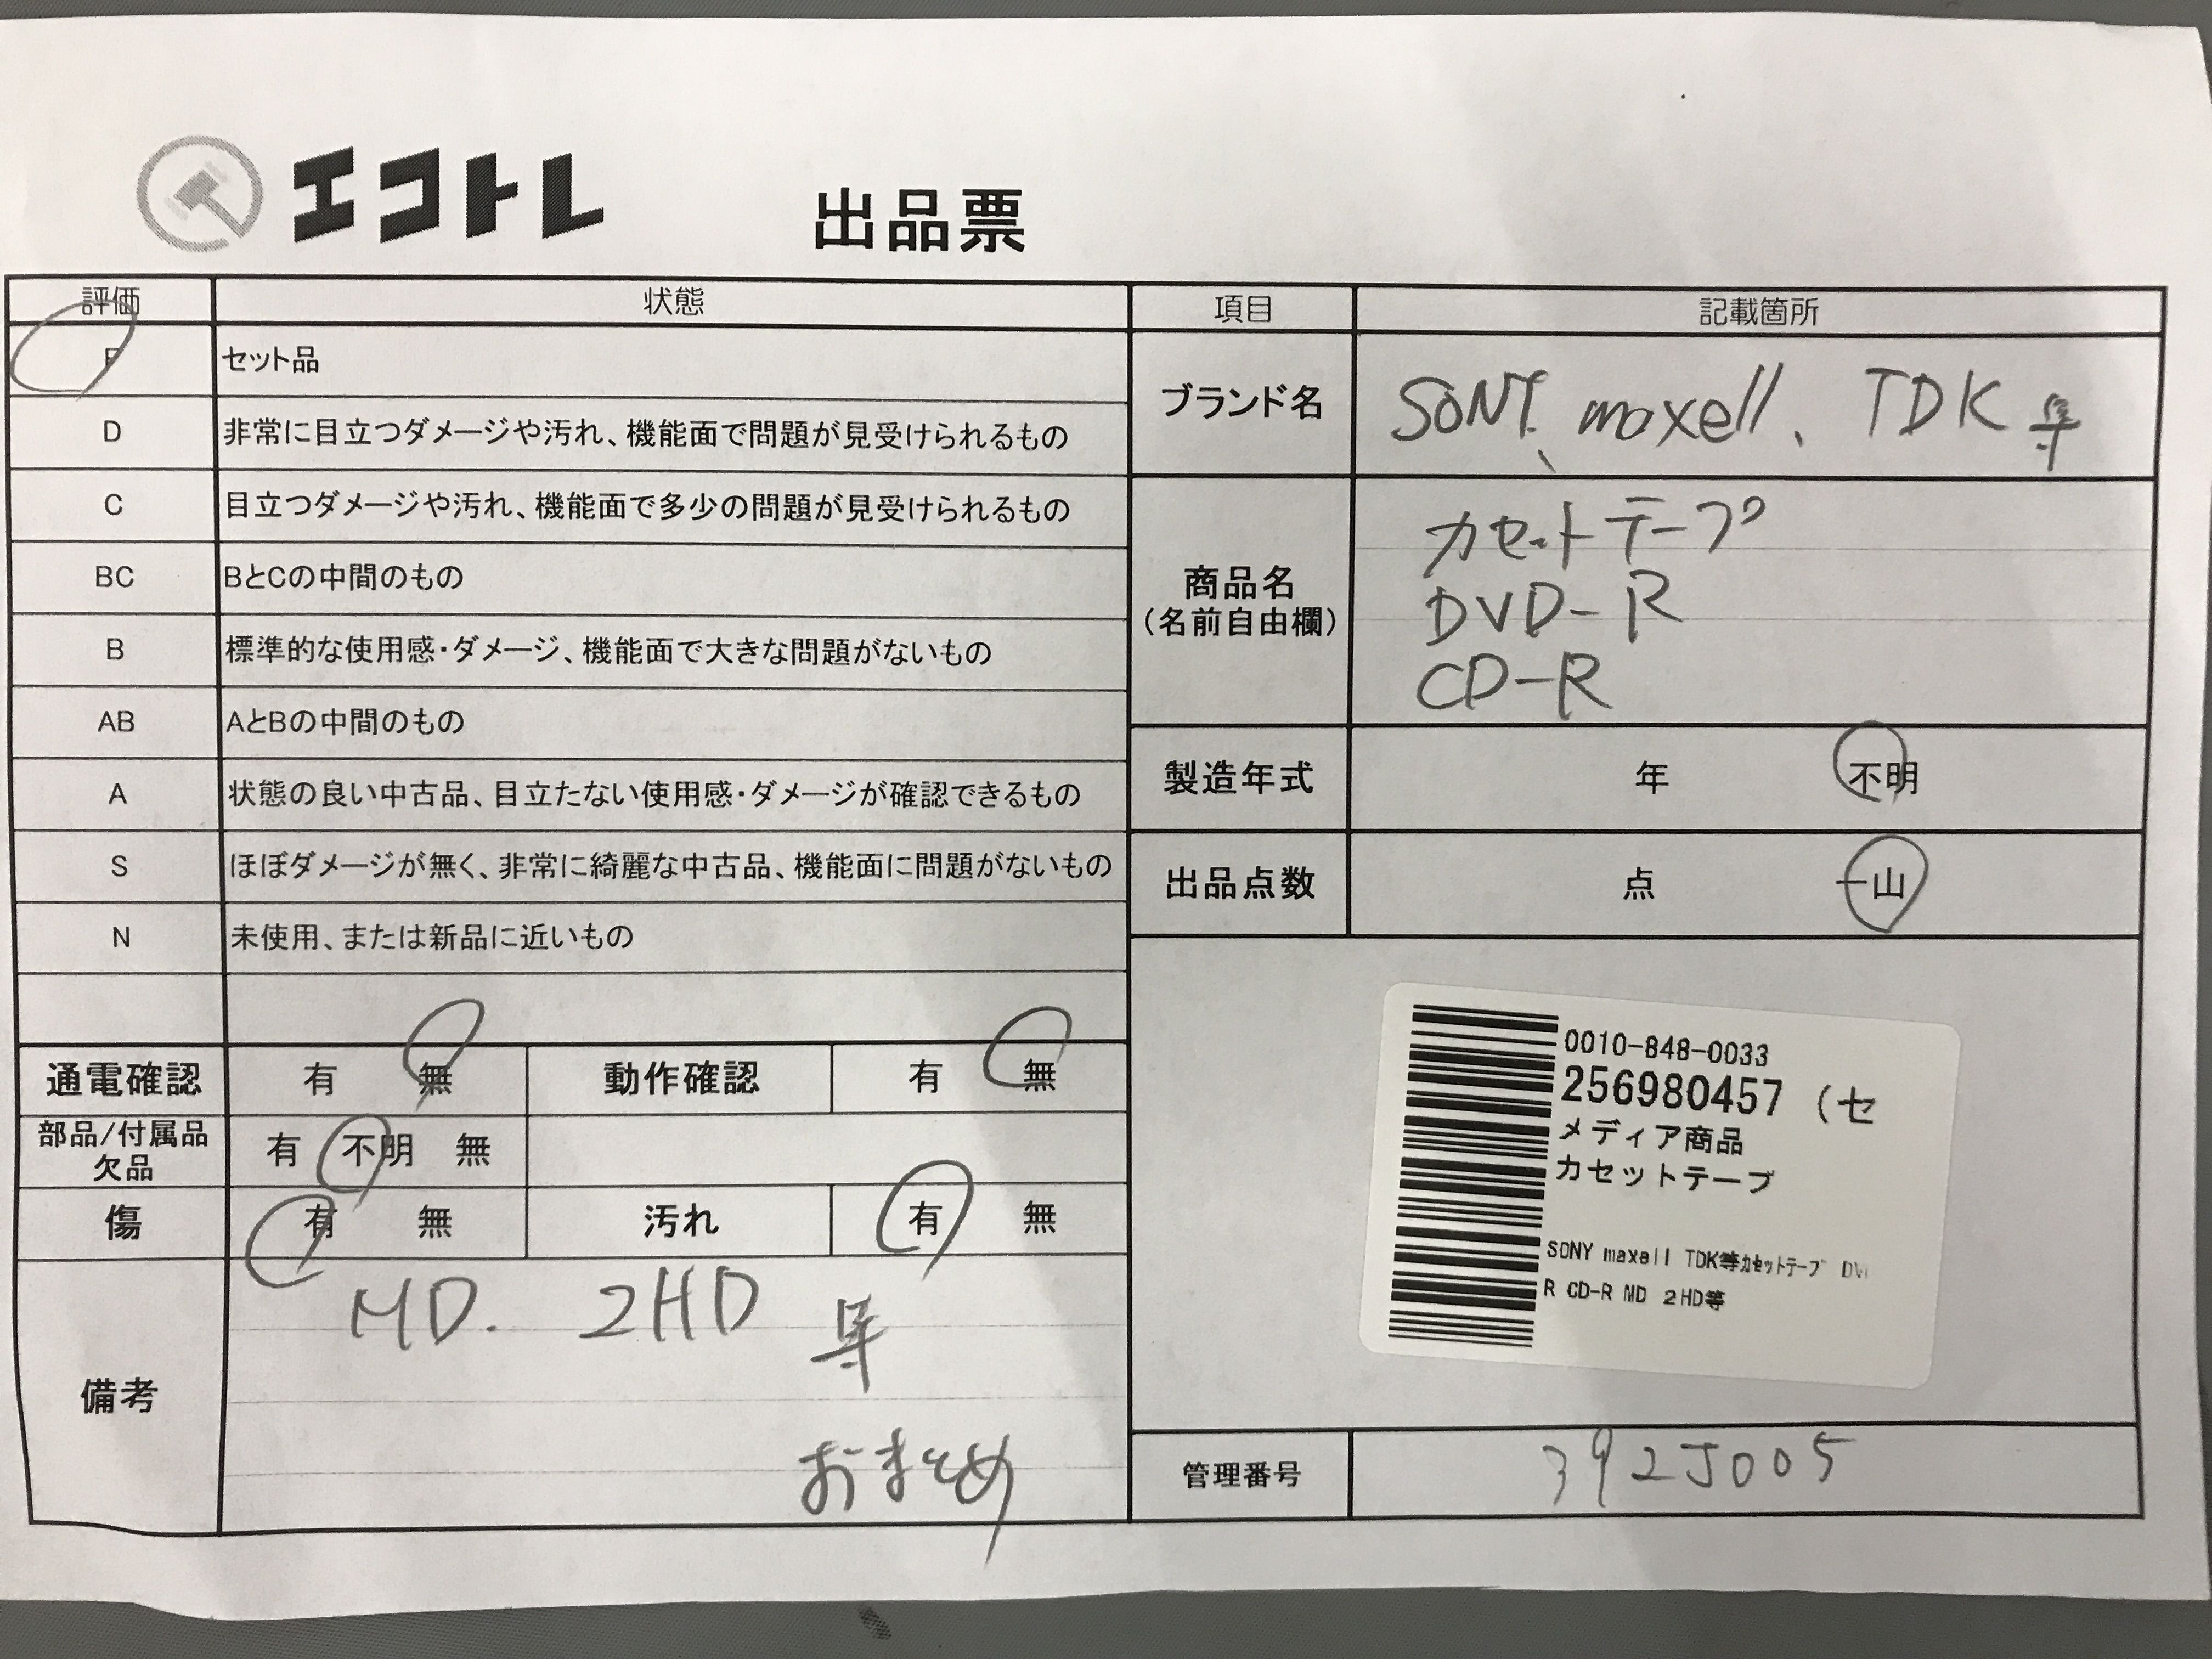 エコトレ
出品票
評価 状態
セット品
D 非常に目立つダメージや汚れ、機能面で問題が見受けられるもの
C 目立つダメージや汚れ、機能面で多少の問題が見受けられるもの
BC BとCの中間のもの
B 標準的な使用感・ダメージ、機能面で大きな問題がないもの
AB AとBの中間のもの
A 状態の良い中古品、目立たない使用感・ダメージが確認できるもの
S ほぼダメージが無く、非常に綺麗な中古品、機能面に問題がないもの
N 未使用、または新品に近いもの
通電確認 有 無 動作確認 有 無
部品/付属品
欠品 有 不明 無
傷 有 無 汚れ 有 無
備考
MD. 2HD 等
おまとめ
項目 記載箇所
ブランド名 SONY、maxell、TDK 等
商品名
(名前自由欄)
カセットテープ
DVD-R
CD-R
製造年式 年 不明
出品点数 点 一山
0010-848-0033
256980457 (セ
メディア商品
カセットテープ
SONY maxell TDK等カセットテープ DV
R CD-R MD 2HD等
管理番号 392J005